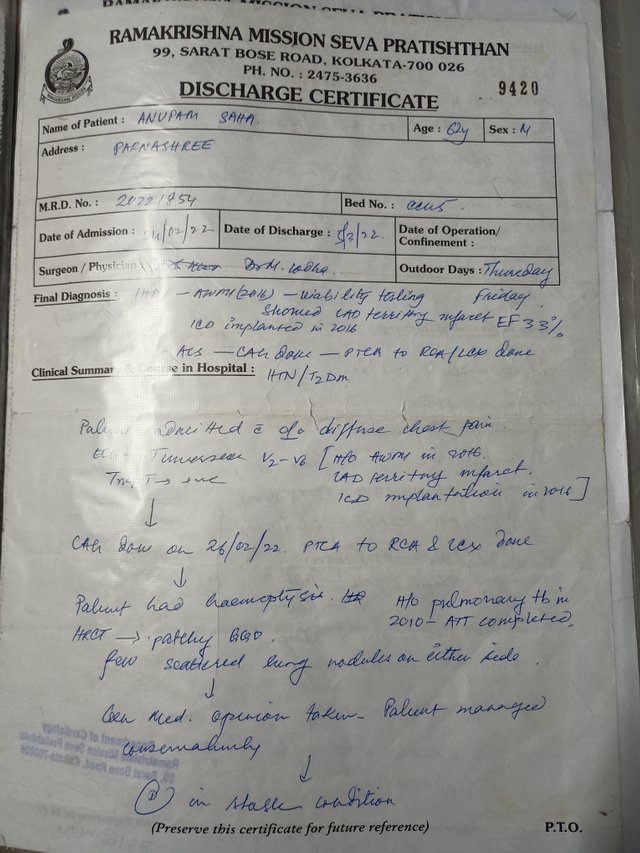 RAMAKRISHNA MISSION SEVA PRATISHTHAN
99, SARAT BOSE ROAD, KOLKATA-700 026
PH. NO. : 2475-3636
DISCHARGE CERTIFICATE 9420
Name of Patient : ANUPAM SAHA. Age : 62y Sex : M
Address : PARNASHREE
M.R.D. No. : 2022/854 Bed No. : CCU5
Date of Admission : 24/02/22 Date of Discharge : 5/3/22 Date of Operation/
Confinement :
Surgeon / Physician Dr M. Lodha. Outdoor Days : Thursday
Final Diagnosis : IHD - AWMI (2016) - viability testing Friday
showed LAD territory infarct EF 33%
ICD implanted in 2016
- ACS - CAG done - PTCA to RCA/LCX done
Clinical Summary & Course in Hospital : HTN/T2DM
Patient admitted c̄ c/o diffuse chest pain.
ECG - T inversion V2-V6 [H/O AWMI in 2016.
Trop T → +ve LAD territory infarct.
ICD implantation in 2016]
↓
CAG done on 26/02/22. PTCA to RCA & LCX done
↓
Patient had haemoptysis. H/o pulmonary tb in
2010 - ATT completed.
HRCT → patchy GGO.
few scattered lung nodules on either side.
↓
Gen Med. opinion taken - Patient managed
conservatively
↓
(D) in stable condition
Department of Cardiology
Ramakrishna Mission Seva Pratishthan
99, Sarat Bose Road, Kolkata-700026
(Preserve this certificate for future reference) P.T.O.